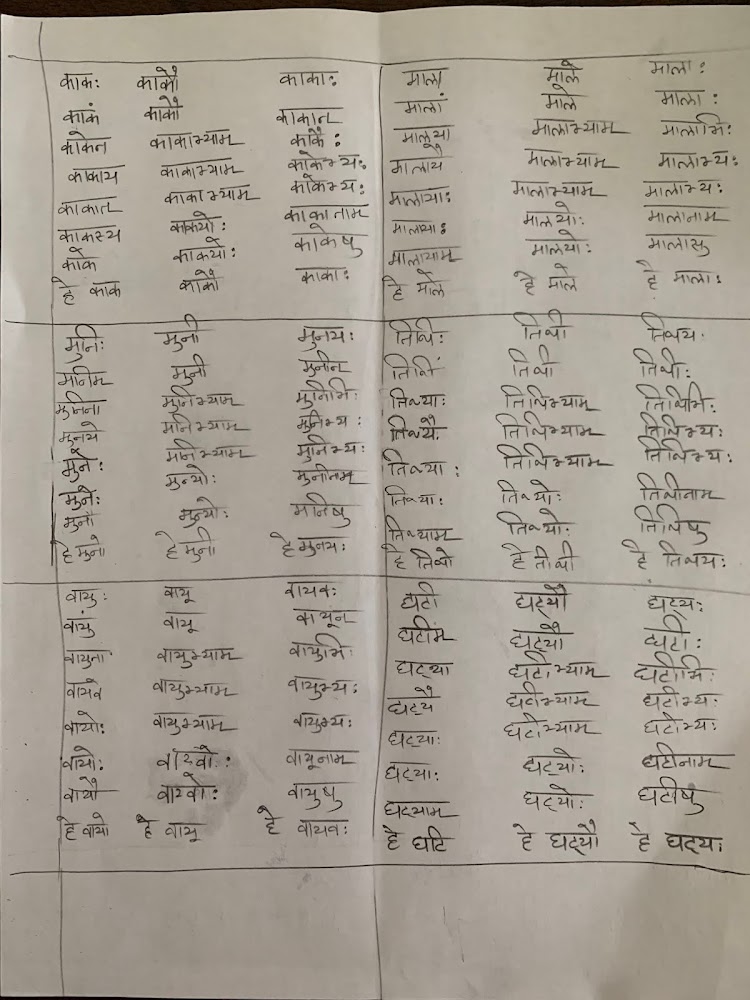 काकः काकौ काकाः
काकं काकौ काकान्
काकेन काकाभ्याम् काकैः
काकाय काकाभ्याम् काकेभ्यः
काकात् काकाभ्याम् काकेभ्यः
काकस्य काकयोः काकानाम्
काके काकयोः काकेषु
हे काक काकौ काकाः
माला माले मालाः
मालां माले मालाः
मालया मालाभ्याम् मालाभिः
मालायै मालाभ्याम् मालाभ्यः
मालायाः मालाभ्याम् मालाभ्यः
मालायाः मालयोः मालानाम
मालायाम् मालयोः मालासु
हे माले हे माले हे मालाः
मुनिः मुनी मुनयः
मुनिम् मुनी मुनीन्
मुनिना मुनिभ्याम् मुनिभिः
मुनये मुनिभ्याम् मुनिभ्यः
मुनेः मुनिभ्याम् मुनिभ्यः
मुनेः मुन्योः मुनीनाम्
मुनौ मुन्योः मुनिषु
हे मुने हे मुनी हे मुनयः
तिथिः तिथी तिथयः
तिथिं तिथी तिथीः
तिथ्या तिथिभ्याम् तिथिभिः
तिथ्यै तिथिभ्याम् तिथिभ्यः
तिथ्याः तिथिभ्याम् तिथिभ्यः
तिथ्याः तिथ्योः तिथीनाम्
तिथ्याम् तिथ्योः तिथिषु
हे तिथे हे तीथी हे तिथयः
वायुः वायू वायवः
वायुं वायू वायून्
वायुना वायुभ्याम् वायुभिः
वायवे वायुभ्याम् वायुभ्यः
वायोः वायुभ्याम् वायुभ्यः
वायोः वाय्वोः वायूनाम
वायौ वाय्वोः वायुषु
हे वायो हे वायू हे वायवः
घटी घट्यौ घट्यः
घटीम् घट्यौ घटीः
घट्या घटीभ्याम् घटीभिः
घट्यै घटीभ्याम् घटीभ्यः
घट्याः घटीभ्याम् घटीभ्यः
घट्याः घट्योः घटीनाम
घट्याम घट्योः घटीषु
हे घटि हे घट्यौ हे घट्यः